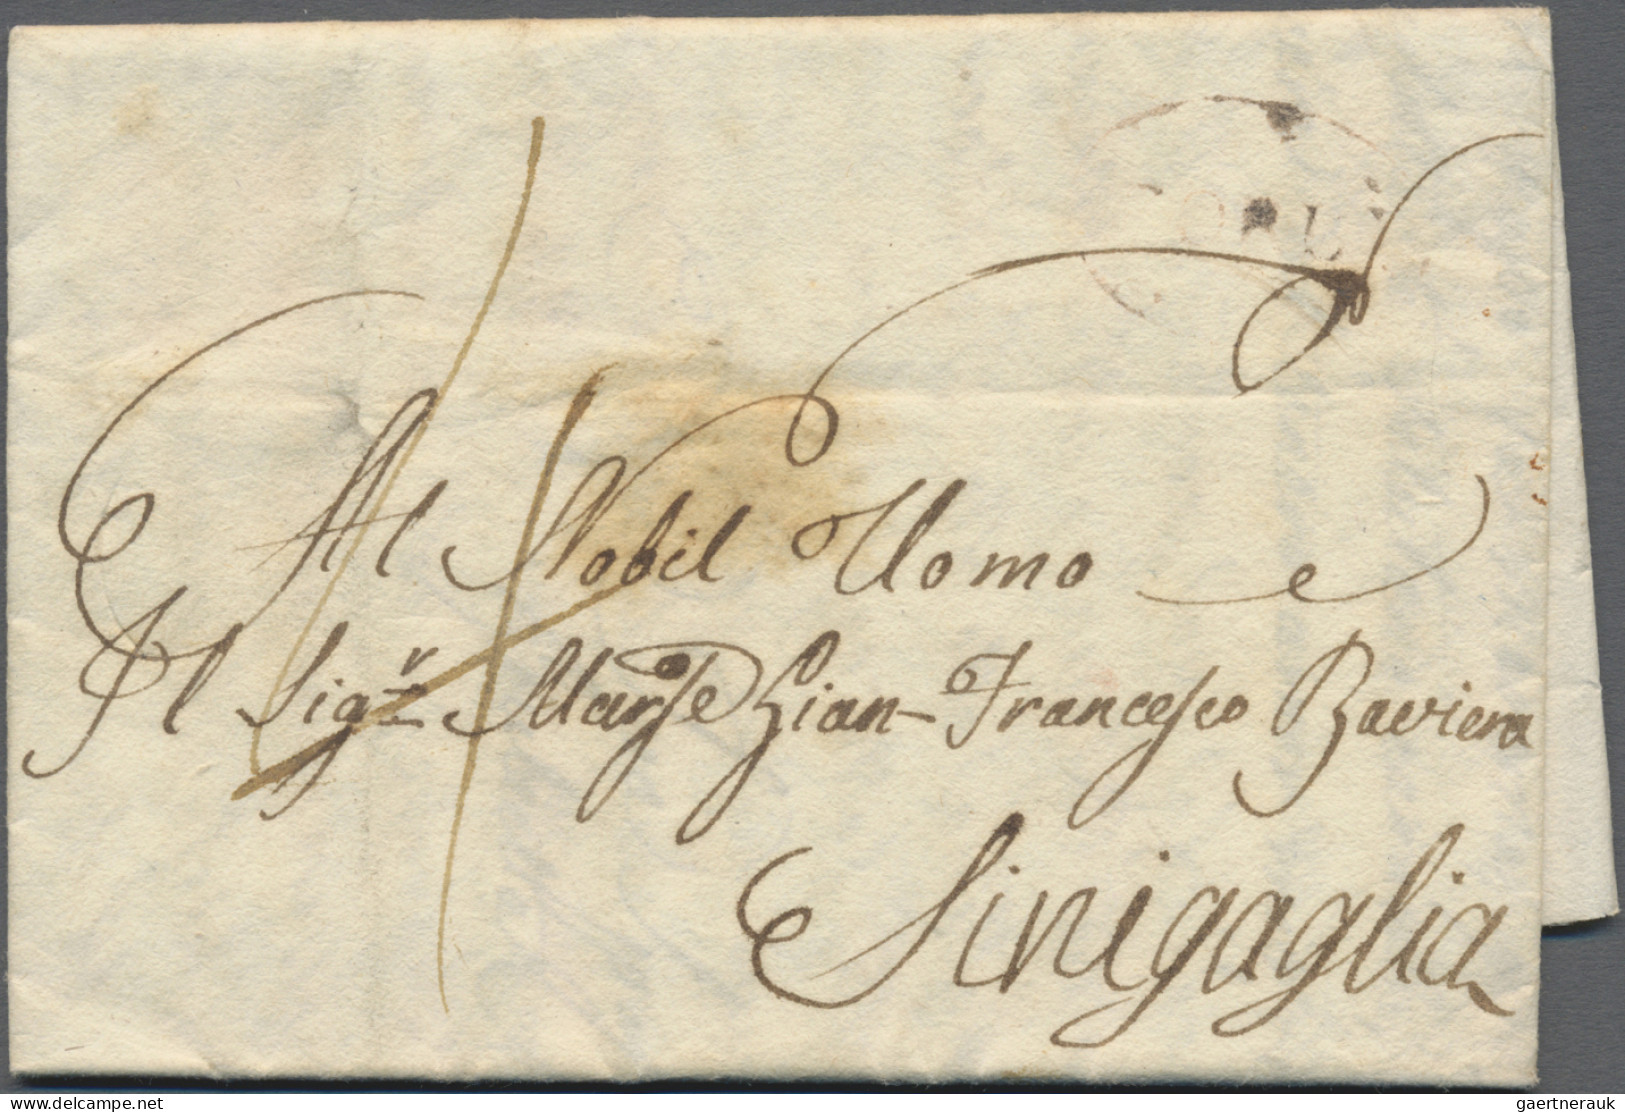 Al Nobil Uomo e
Il Sigr Marse Gian-Francesco Baviera
Sinigaglia
gaertnerauk